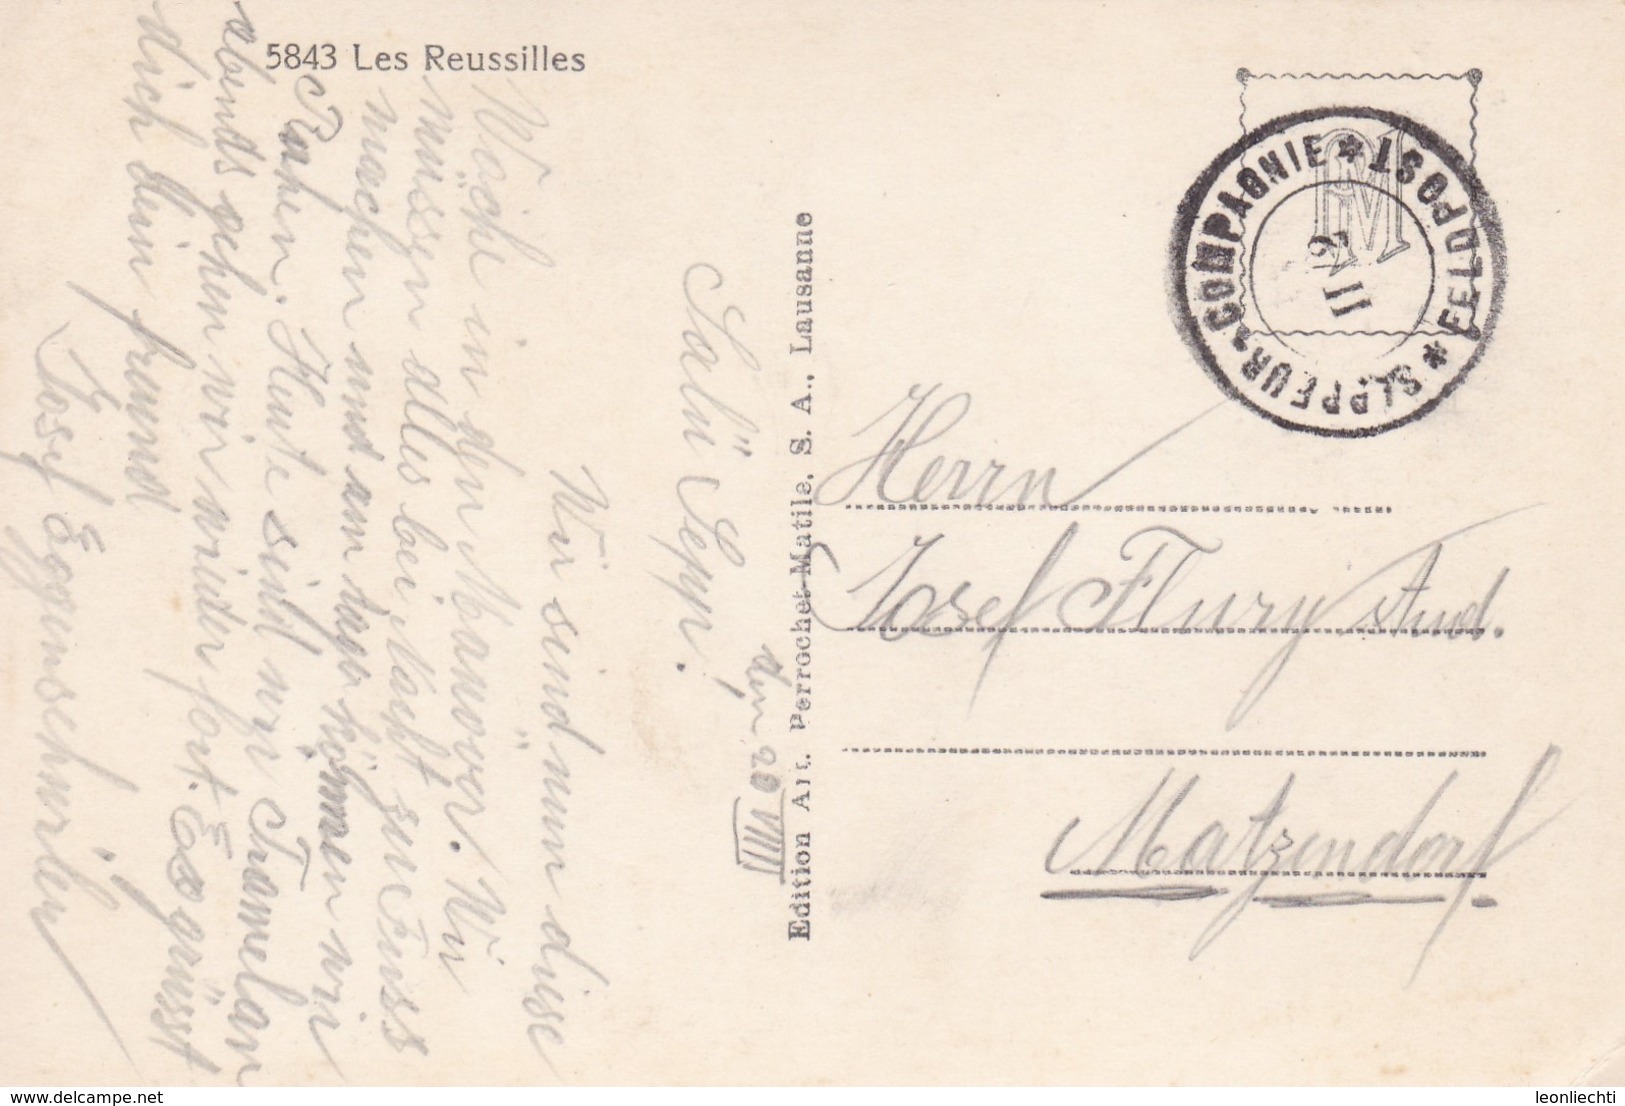 5843 Les Reussilles
den 20 VIII
Salü Sepp!
Wir sind nun diese
Woche in den Manöver. Wir
müssen alles bei Nacht zu Fuss
machen und am tage können wir
Ruhen. Heute sind wir Tramelan
abends gehen wir wieder fort. Es grüsst
dich dein freund
Josef Eggenschwiler
Edition Art. Perrochet-Matile, S. A., Lausanne
PM
SAPPEUR-COMPAGNIE * FELDPOST *
II 2
Herrn
Josef Flury stud.
Matzendorf
www.delcampe.net
leonliechti